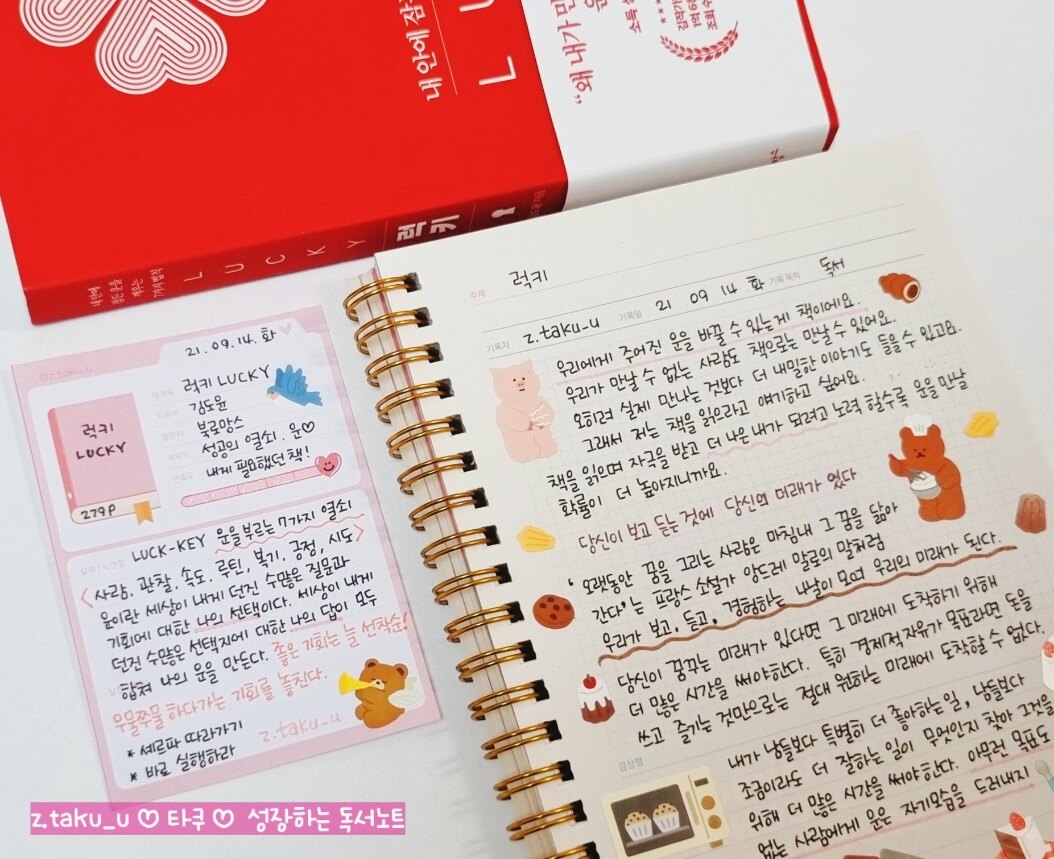 내 안에 잠
L U
"왜 내가 만
운
소득
김작가
1억 6
조회 수
내 안에
잠든 운을
깨우는
7가지 법칙
L U C K Y
럭키
21. 09. 14. 화
@z.taku_u
럭키 LUCKY
김도윤
북로망스
성공의 열쇠. 운♡
내게 필요했던 책!
럭키
LUCKY
279P
LUCK-KEY 운을 부르는 7가지 열쇠
<사람, 관찰, 속도, 루틴, 복기, 긍정, 시도>
운이란 세상이 내게 던진 수많은 질문과
기회에 대한 나의 선택이다. 세상이 내게
던진 수많은 선택지에 대한 나의 답이 모두
합쳐 나의 운을 만든다. 좋은 기회는 늘 선착순!
우물쭈물 하다가는 기회를 놓친다.
* 셰르파 따라가기
* 바로 실행하라
z.taku-u
주제 럭키
기록자 z.taku-u 기록일 21 09. 14 화 기록 목적 독서
우리에게 주어진 운을 바꿀 수 있는게 책이에요.
우리가 만날 수 없는 사람도 책으로는 만날 수 있어요.
오히려 실제 만나는 것보다 더 내밀한 이야기도 들을 수 있고요.
그래서 저는 책을 읽으라고 얘기하고 싶어요.
책을 읽으며 자극을 받고 더 나은 내가 되려고 노력 할수록 운을 만날
확률이 더 높아지니까요.
당신이 보고 듣는 것에 당신의 미래가 있다
'오랫동안 꿈을 그리는 사람은 마침내 그 꿈을 닮아
간다'는 프랑스 소설가 앙드레 말로의 말처럼
우리가 보고, 듣고, 경험하는 나날이 모여 우리의 미래가 된다.
당신이 꿈꾸는 미래가 있다면 그 미래에 도착하기 위해
더 많은 시간을 써야한다. 특히 경제적 자유가 목표라면 돈을
쓰고 즐기는 것만으로는 절대 원하는 미래에 도착할 수 없다.
감상평
내가 남들보다 특별히 더 좋아하는 일, 남들보다
조금이라도 더 잘하는 일이 무엇인지 찾아 그것을
위해 더 많은 시간을 써야한다. 아무런 목표도
없는 사람에게 운은 자기모습을 드러내지
z.taku_u ♡ 타쿠 ♡ 성장하는 독서노트